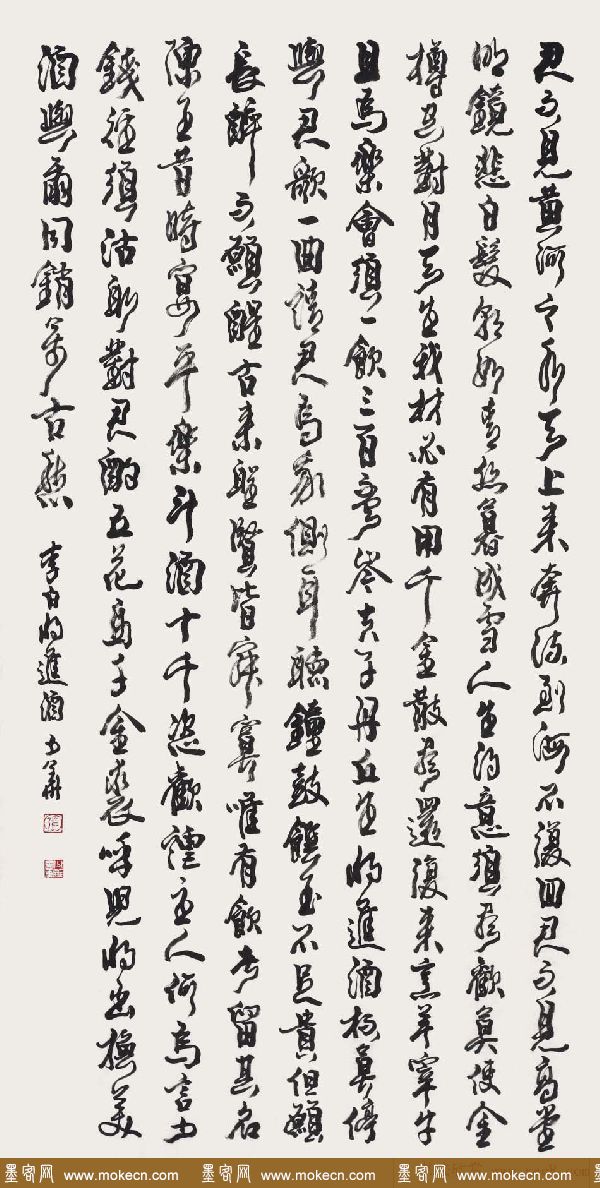 君不見黃河之水天上來奔流到海不復回君不見高堂
明鏡悲白髮朝如青絲暮成雪人生得意須盡歡莫使金
樽空對月天生我材必有用千金散盡還復來烹羊宰牛
且為樂會須一飲三百杯岑夫子丹丘生將進酒杯莫停
與君歌一曲請君為我側耳聽鐘鼓饌玉不足貴但願
長醉不願醒古來聖賢皆寂寞唯有飲者留其名
陳王昔時宴平樂斗酒十千恣歡謔主人何為言少
錢徑須沽取對君酌五花馬千金裘呼兒將出換美
酒與爾同銷萬古愁
李白將進酒
墨客网 www.mokecn.com 墨客网 www.mokecn.com 墨客网 www.mokecn.com